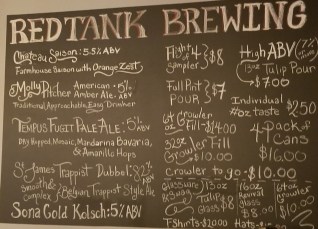 RED TANK BREWING
Chateau Saison: 5.5% ABV
Farmhouse Saison with Orange Zest
Molly Pitcher American · 5%
Amber Ale · ABV
Traditional, Approachable, Easy Drinker
Tempus Fugit Pale Ale: 5% ABV
Dry Hopped, Mosaic, Mandarina Bavaria,
& Amarillo Hops
St James Trappist Dubbel: 8.2% ABV
Smooth & Complex Belgian Trappist Style Ale
Sona Gold Kolsch: 5% ABV
Flight of 4 Sampler $8
Full Pint
Pour $7
64 Crowler
oz Fill - $14.00
32oz Fill
Crowler $10.00
Crowler to go - $10.00
Glassware 13oz
Tulip Glass $8
T-Shirts $20.00
High ABV (7%
13oz Tulip Pour
$7.00
Individual
4oz taste $2.50
4-Pack of
Cans
$16.00
16oz
Glass
$8.00
64oz
Growler
$10.00
Hats